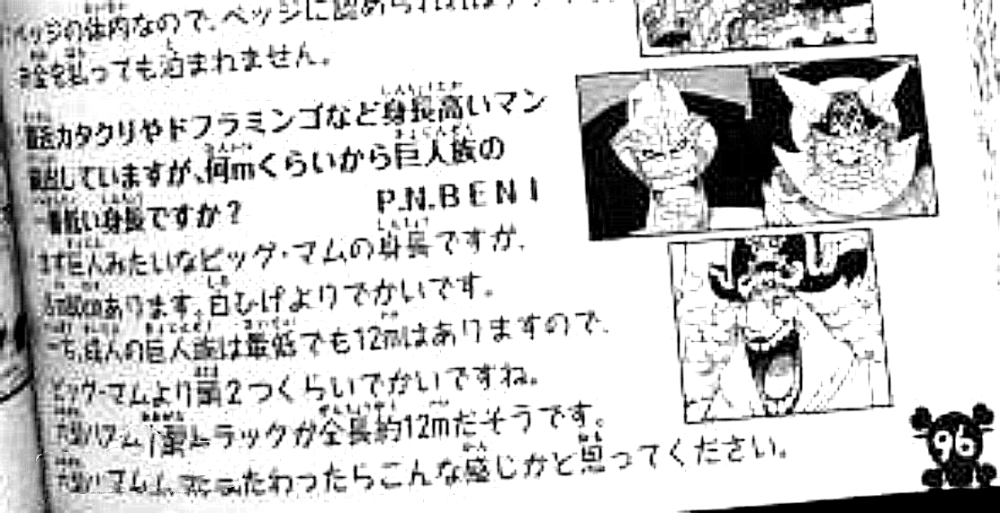 ベッジの体内なので、ベッジに認められれば
お金を払っても泊まれません。
カタクリやドフラミンゴなど身長高いマン
出していますが、何mくらいから巨人族の
一番低い身長ですか？
P.N.BENI
まず巨人みたいなビッグ・マムの身長ですが、
8m80cmあります。白ひげよりでかいです。
一方、成人の巨人族は最低でも12mはありますので、
ビッグ・マムより頭2つくらいでかいですね。
大型 トラックが全長約12mだそうです。
大型 たわったらこんな感じかと思ってください。
96